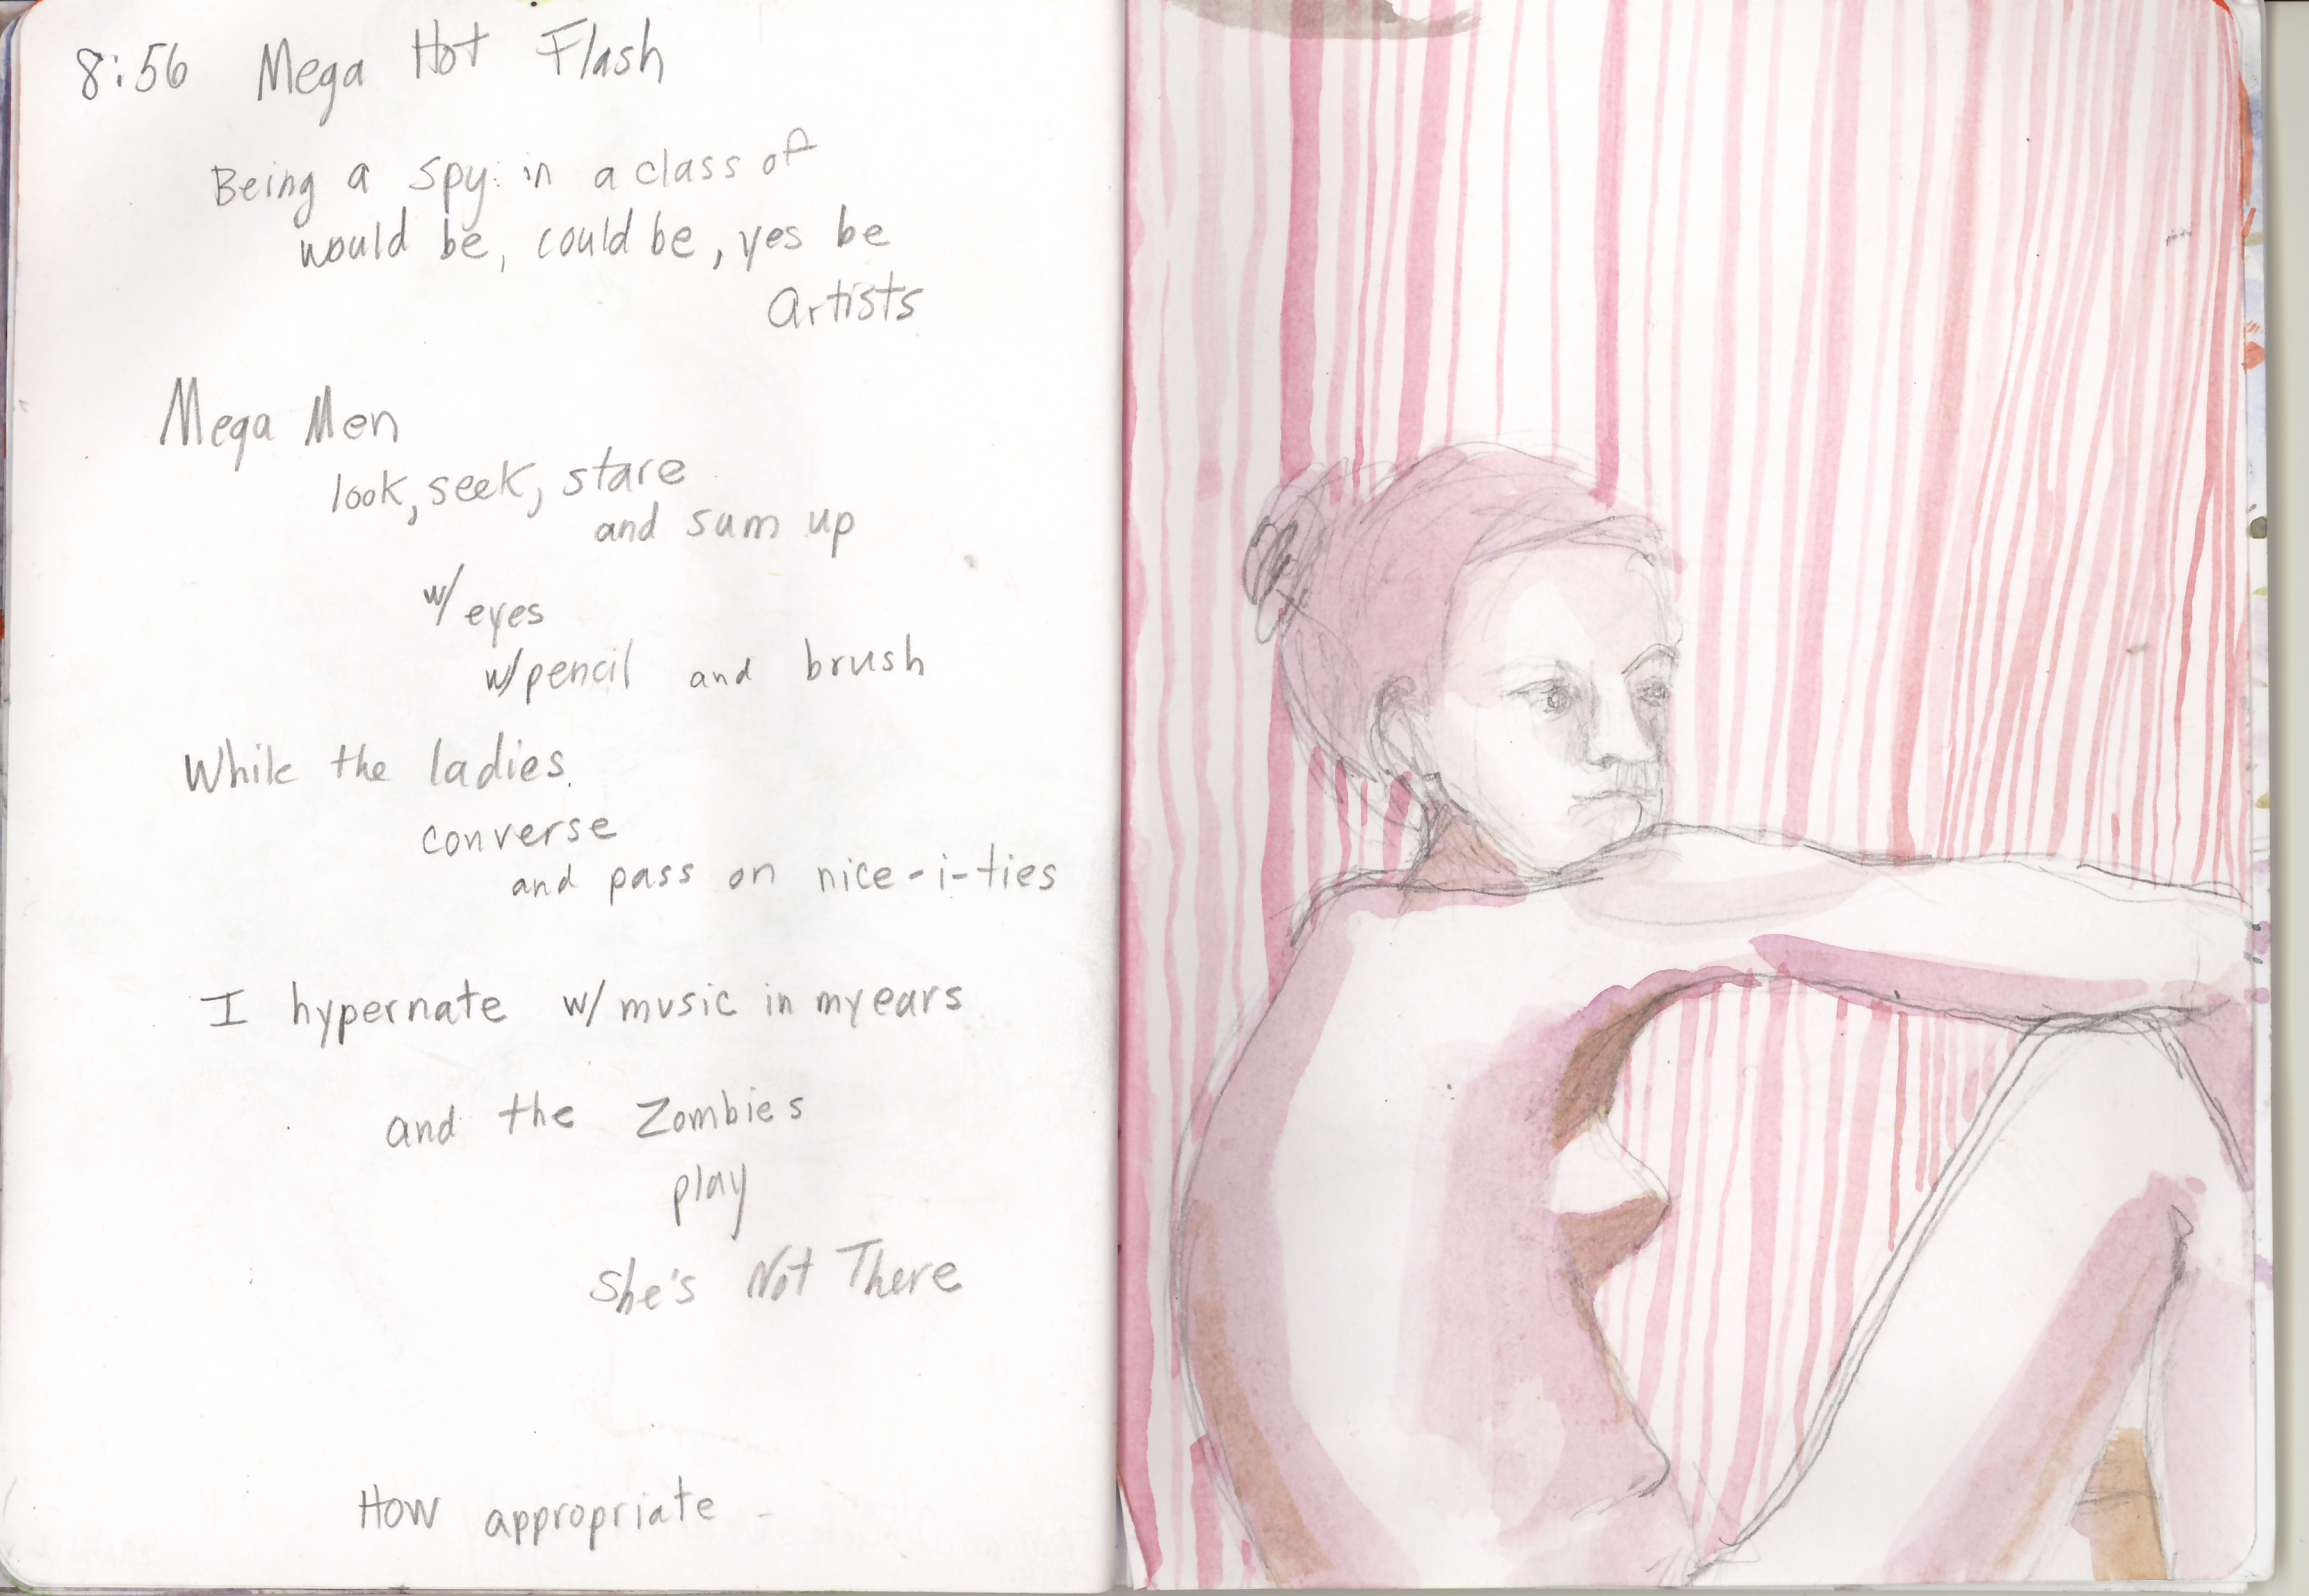 8:56 Mega Hot Flash
Being a spy in a class of
would be, could be, yes be
Artists
Mega Men
look, seek, stare
and sum up
w/ eyes
w/ pencil and brush
While the ladies.
converse
and pass on nice-i-ties
I hypernate w/ music in my ears
and the Zombies
play
She's Not There
How appropriate -